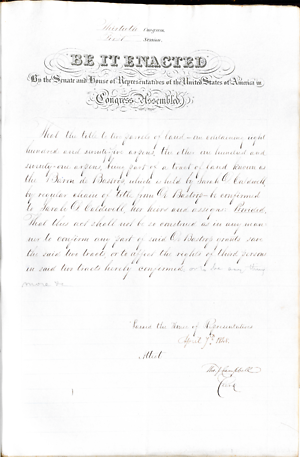 Thirtieth Congress
First Session
BE IT ENACTED
By the Senate and House of Representatives of the United States of America in
Congress Assembled,
That the title to two parcels of land—one containing eight
hundred and seventy-five arpens, the other one hundred and
seventy-one arpens, being part of a tract of land known as
the De Bastrop which is held by Jacob C. Caldwell
by regular chain of title from De Bastrop be confirmed
to Jacob C. Caldwell, his heirs and assigns: Provided,
That this act shall not be so construed as in any man-
ner to confirm any part of said De Bastrop's grants save
the said two tracts, or to affect the rights of third persons
in said two tracts hereby confirmed, or to any thing
more
Passed the House of Representatives
April 7th
Attest
Campbell
Clerk